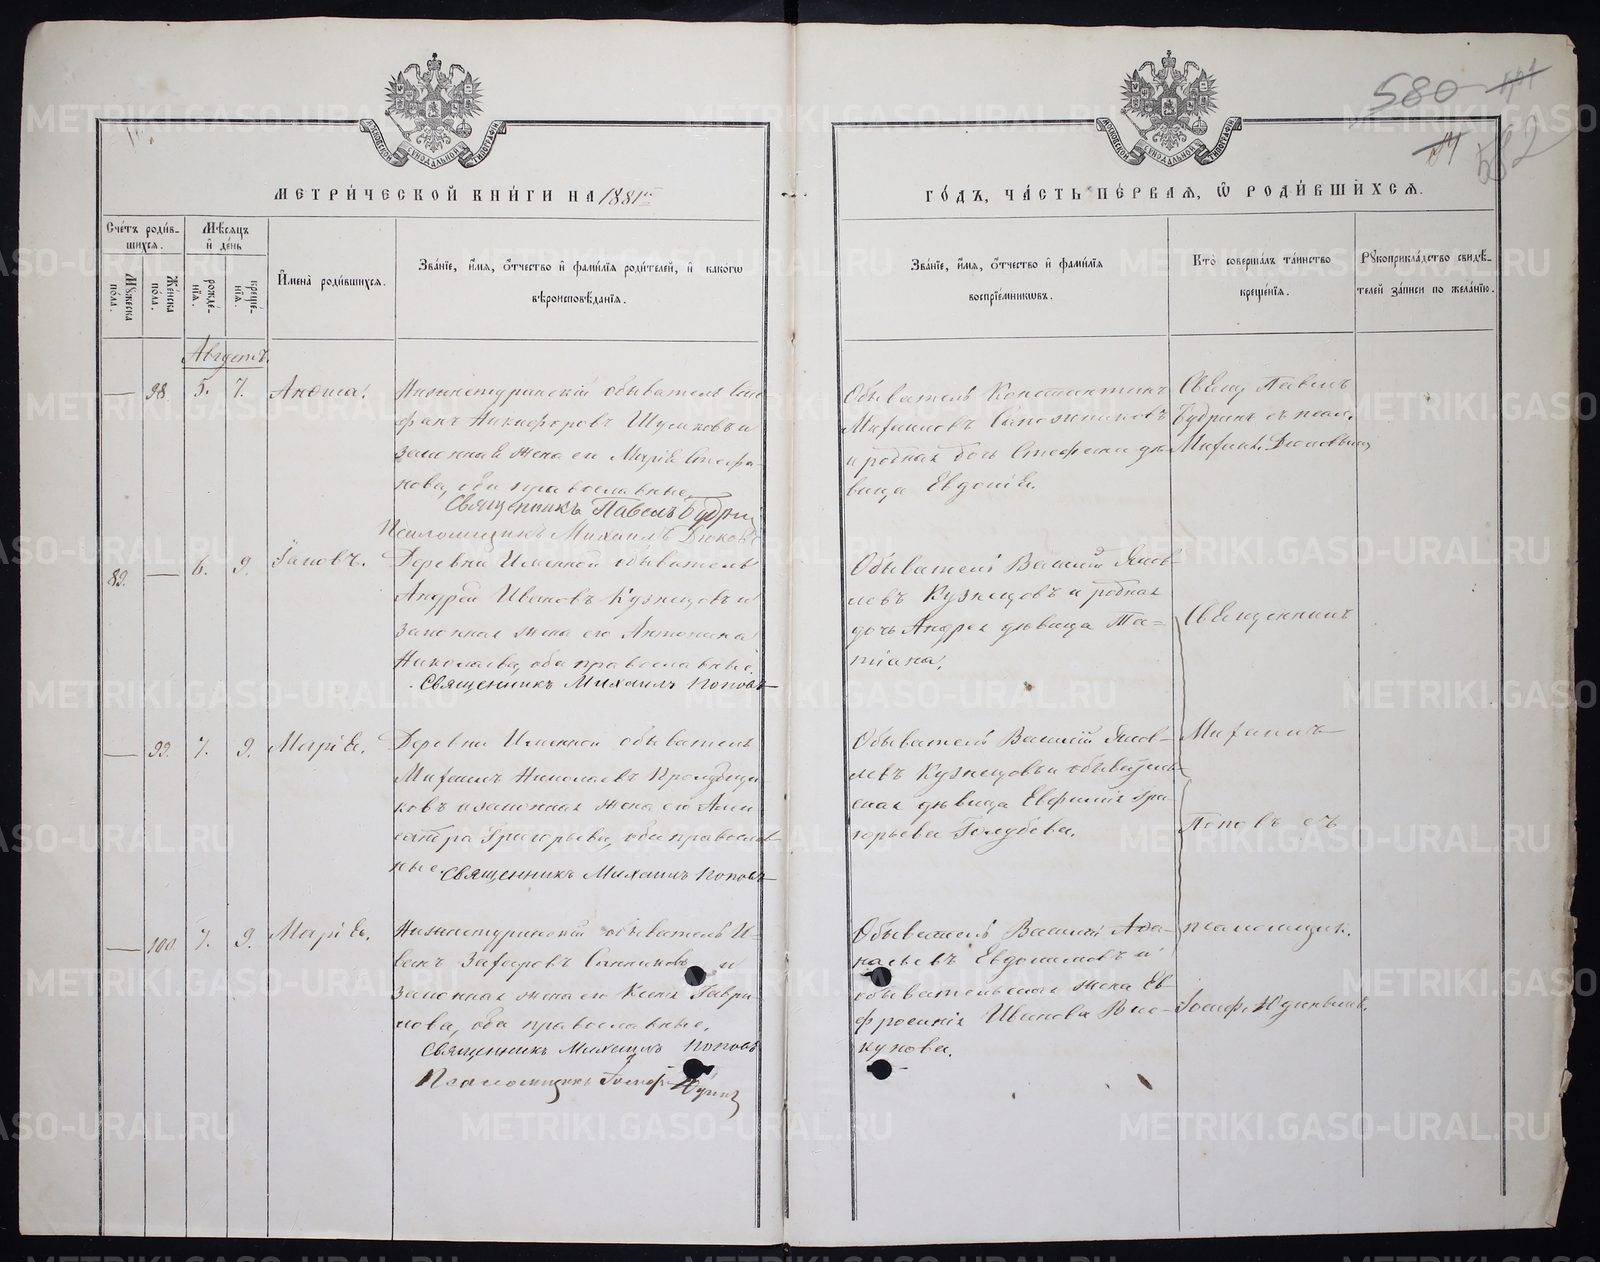 580
582
МОСКОВСКОЙ СѴНОДАЛЬНОЙ ТИПОГРАФІИ
МОСКОВСКОЙ СѴНОДАЛЬНОЙ ТИПОГРАФІИ
МЕТРИ́ЧЕСКОЙ КНИ́ГИ НА 1881
ГО́ДЪ, ЧА́СТЬ ПЕ́РВАЯ, Ѡ РОДИ́ВШИХСЯ.
Сче́тъ роди́в-
шихся.
Мꙋжеска по́ла.
Же́нска по́ла.
Мѣ́сяцъ и де́нь
рожде́-
нїя.
креще́-
нїя.
И҆мена̀ роди́вшихся.
Зва́нїе, и҆́мя, ѻ҆́тчество и҆ фами́лїя роди́телей, и҆ како́гѡ
вѣроисповѣ́данїя.
Зва́нїе, и҆́мя, ѻ҆́тчество и҆ фами́лїя
воспрїе́мникѡвъ.
Кто̀ соверша́лъ та́инство
креще́нїя.
Рꙋкоприкла́дство свидѣ́-
телей за́писи по жела́нїю.
Августъ.
— 98. 5. 7. Анѳиса.
Нижнетуринскій обыватель Сте-
фанъ Никифоровъ
законная жена его Марія Стефа-
нова, оба православные.
Священникъ Павелъ Будринъ
Псаломщикъ Михаилъ Дюковъ
Обыватель Константинъ
Михаиловъ Сапожниковъ
и родная дочь Стефана дѣ-
вица Евдокія.
Свящ. Павелъ
Будринъ съ псал.
Михаил.
89. — 6. 9. Іаковъ.
Деревни Именной обыватель
Андрей Ивановъ Кузнецовъ и
законная жена его Антонина
Николаева, оба православные.
Священникъ Михаилъ Поповъ
Обыватель Василій Яков-
левъ Кузнецовъ и родная
дочь Андрея дѣвица Та-
тіана.
Священникъ
— 99. 7. 9. Марія.
Деревни Именной обыватель
Михаилъ Николаевъ
ковъ и законная жена его Алек-
сандра Григорьева, оба православ-
ные. Священникъ Михаилъ Поповъ
Обыватель Василій Яков-
левъ Кузнецовъ и обыватель-
ская дѣвица Евфимія Гри-
горьева Голубева.
Михаилъ
Поповъ съ
— 100. 7. 9. Марія.
Нижнетуринскій обыватель И-
ванъ Захаровъ Санниковъ и
законная жена его Ксенія Гаври-
лова, оба православные.
Священникъ Михаилъ Поповъ
Псаломщикъ Іосифъ
Обыватель Василій Аѳа-
насьевъ Евдокимовъ и
обывательская жена Ев-
фросинія Иванова
кунова.
псаломщик.
Іосиф.